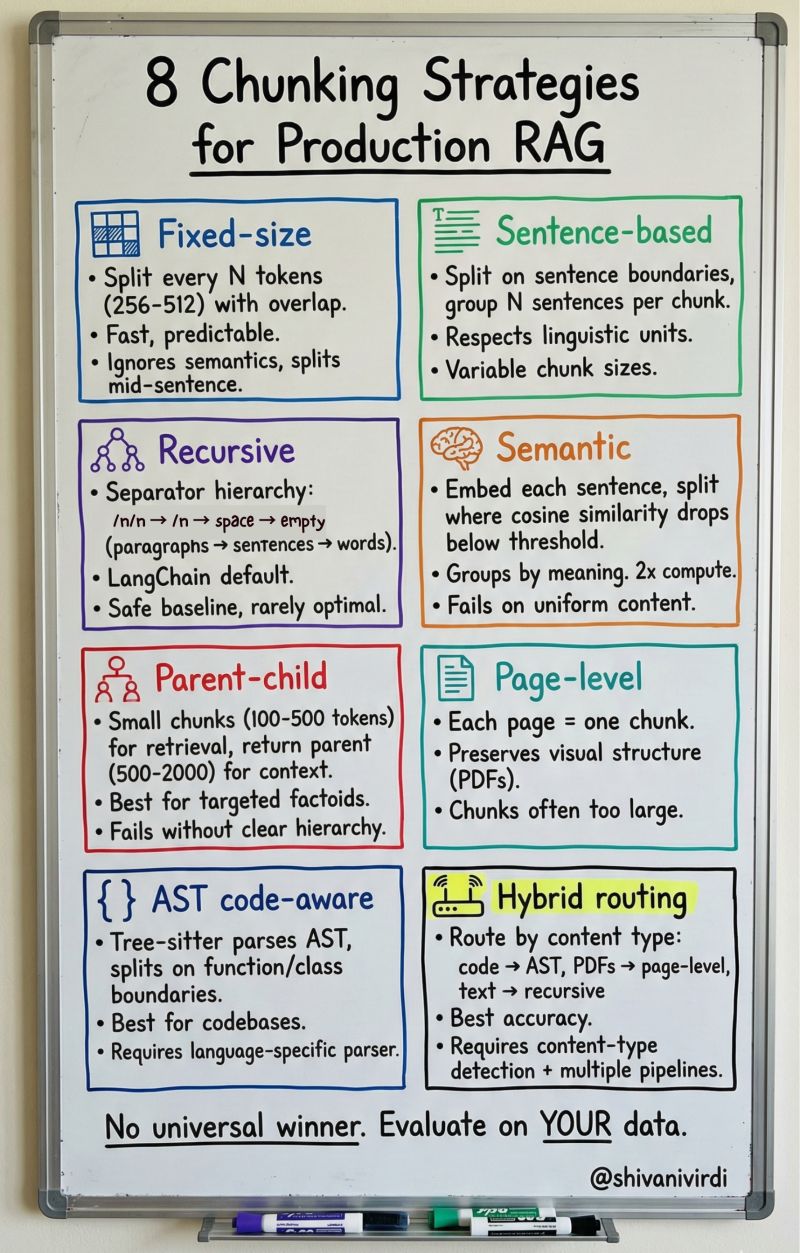 8 Chunking Strategies
for Production RAG
Fixed-size
• Split every N tokens
(256-512) with overlap.
• Fast, predictable.
• Ignores semantics, splits
mid-sentence.
T
Sentence-based
• Split on sentence boundaries,
group N sentences per chunk.
• Respects linguistic units.
• Variable chunk sizes.
Recursive
• Separator hierarchy:
/n/n → /n → space → empty
(paragraphs → sentences → words).
• LangChain default.
• Safe baseline, rarely optimal.
Semantic
• Embed each sentence, split
where cosine similarity drops
below threshold.
• Groups by meaning. 2x compute.
• Fails on uniform content.
Parent-child
• Small chunks (100-500 tokens)
for retrieval, return parent
(500-2000) for context.
• Best for targeted factoids.
• Fails without clear hierarchy.
Page-level
• Each page = one chunk.
• Preserves visual structure
(PDFs).
• Chunks often too large.
{ } AST code-aware
• Tree-sitter parses AST,
splits on function/class
boundaries.
• Best for codebases.
• Requires language-specific parser.
Hybrid routing
• Route by content type:
code → AST, PDFs → page-level,
text → recursive
• Best accuracy.
• Requires content-type
detection + multiple pipelines.
No universal winner. Evaluate on YOUR data.
@shivanivirdi